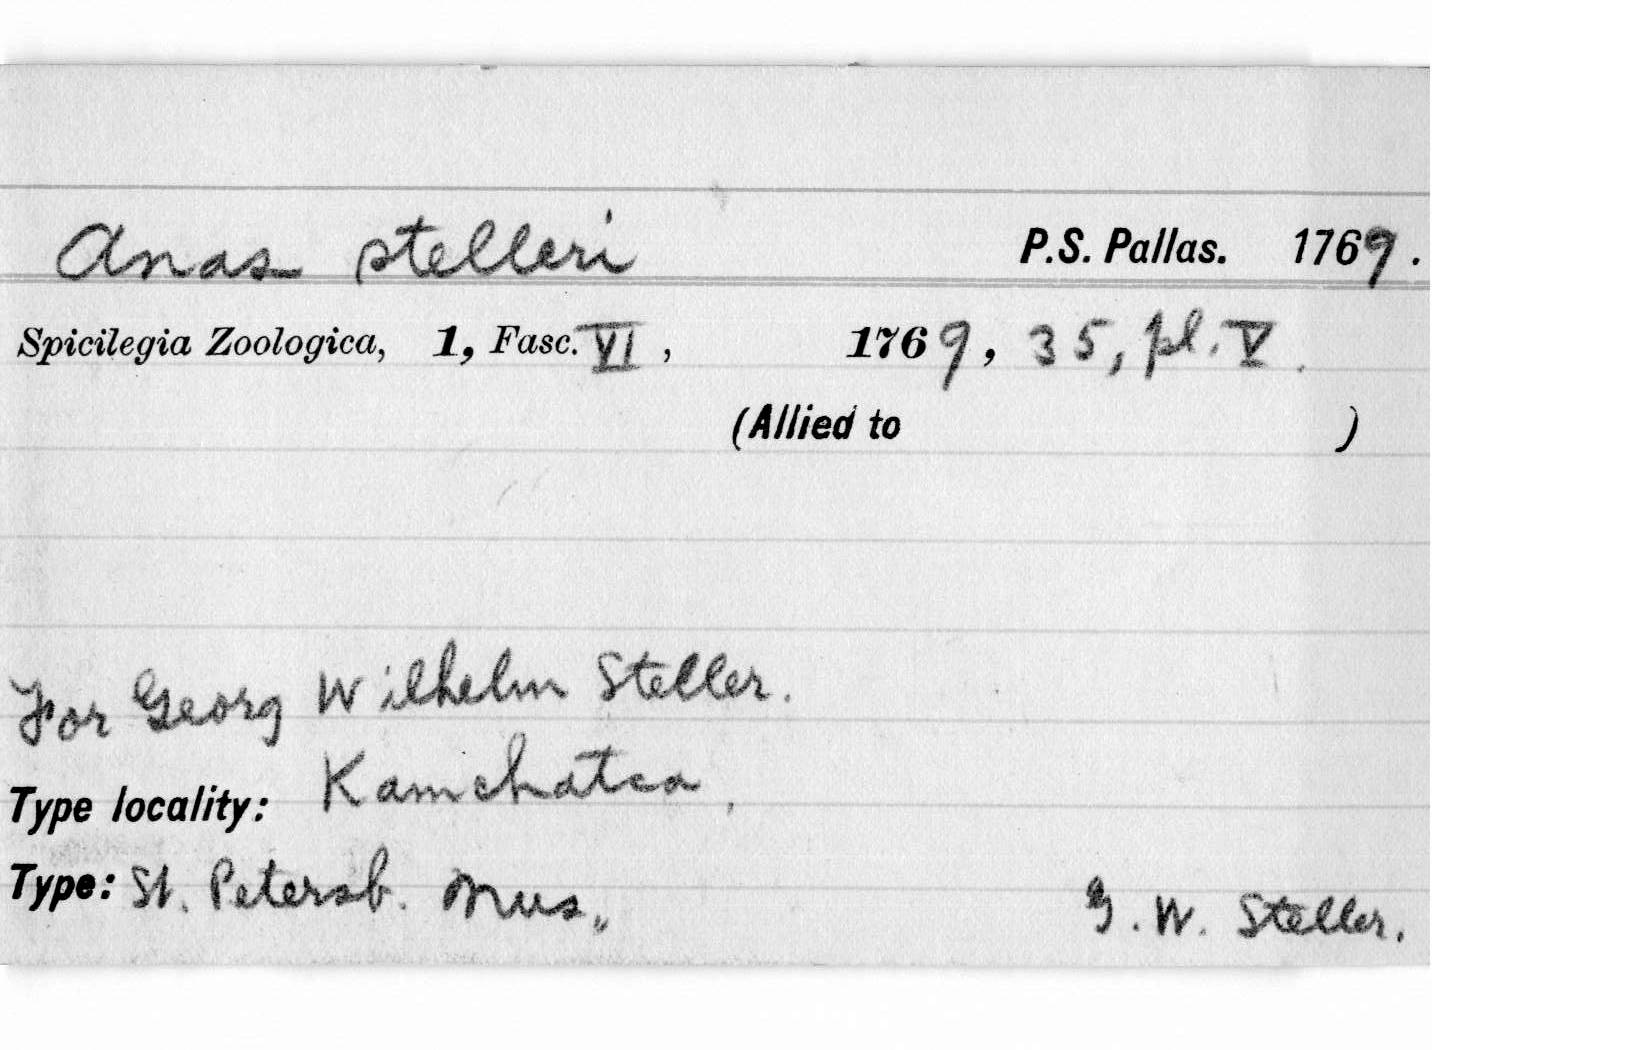 Anas stelleri P.S. Pallas. 1769.
Spicilegia Zoologica, 1, Fasc. VI, 1769, 35, pl. V.
(Allied to )
For Georg Wilhelm Steller.
Type locality: Kamchatca,
Type: St. Petersb. Mus., G. W. Steller.